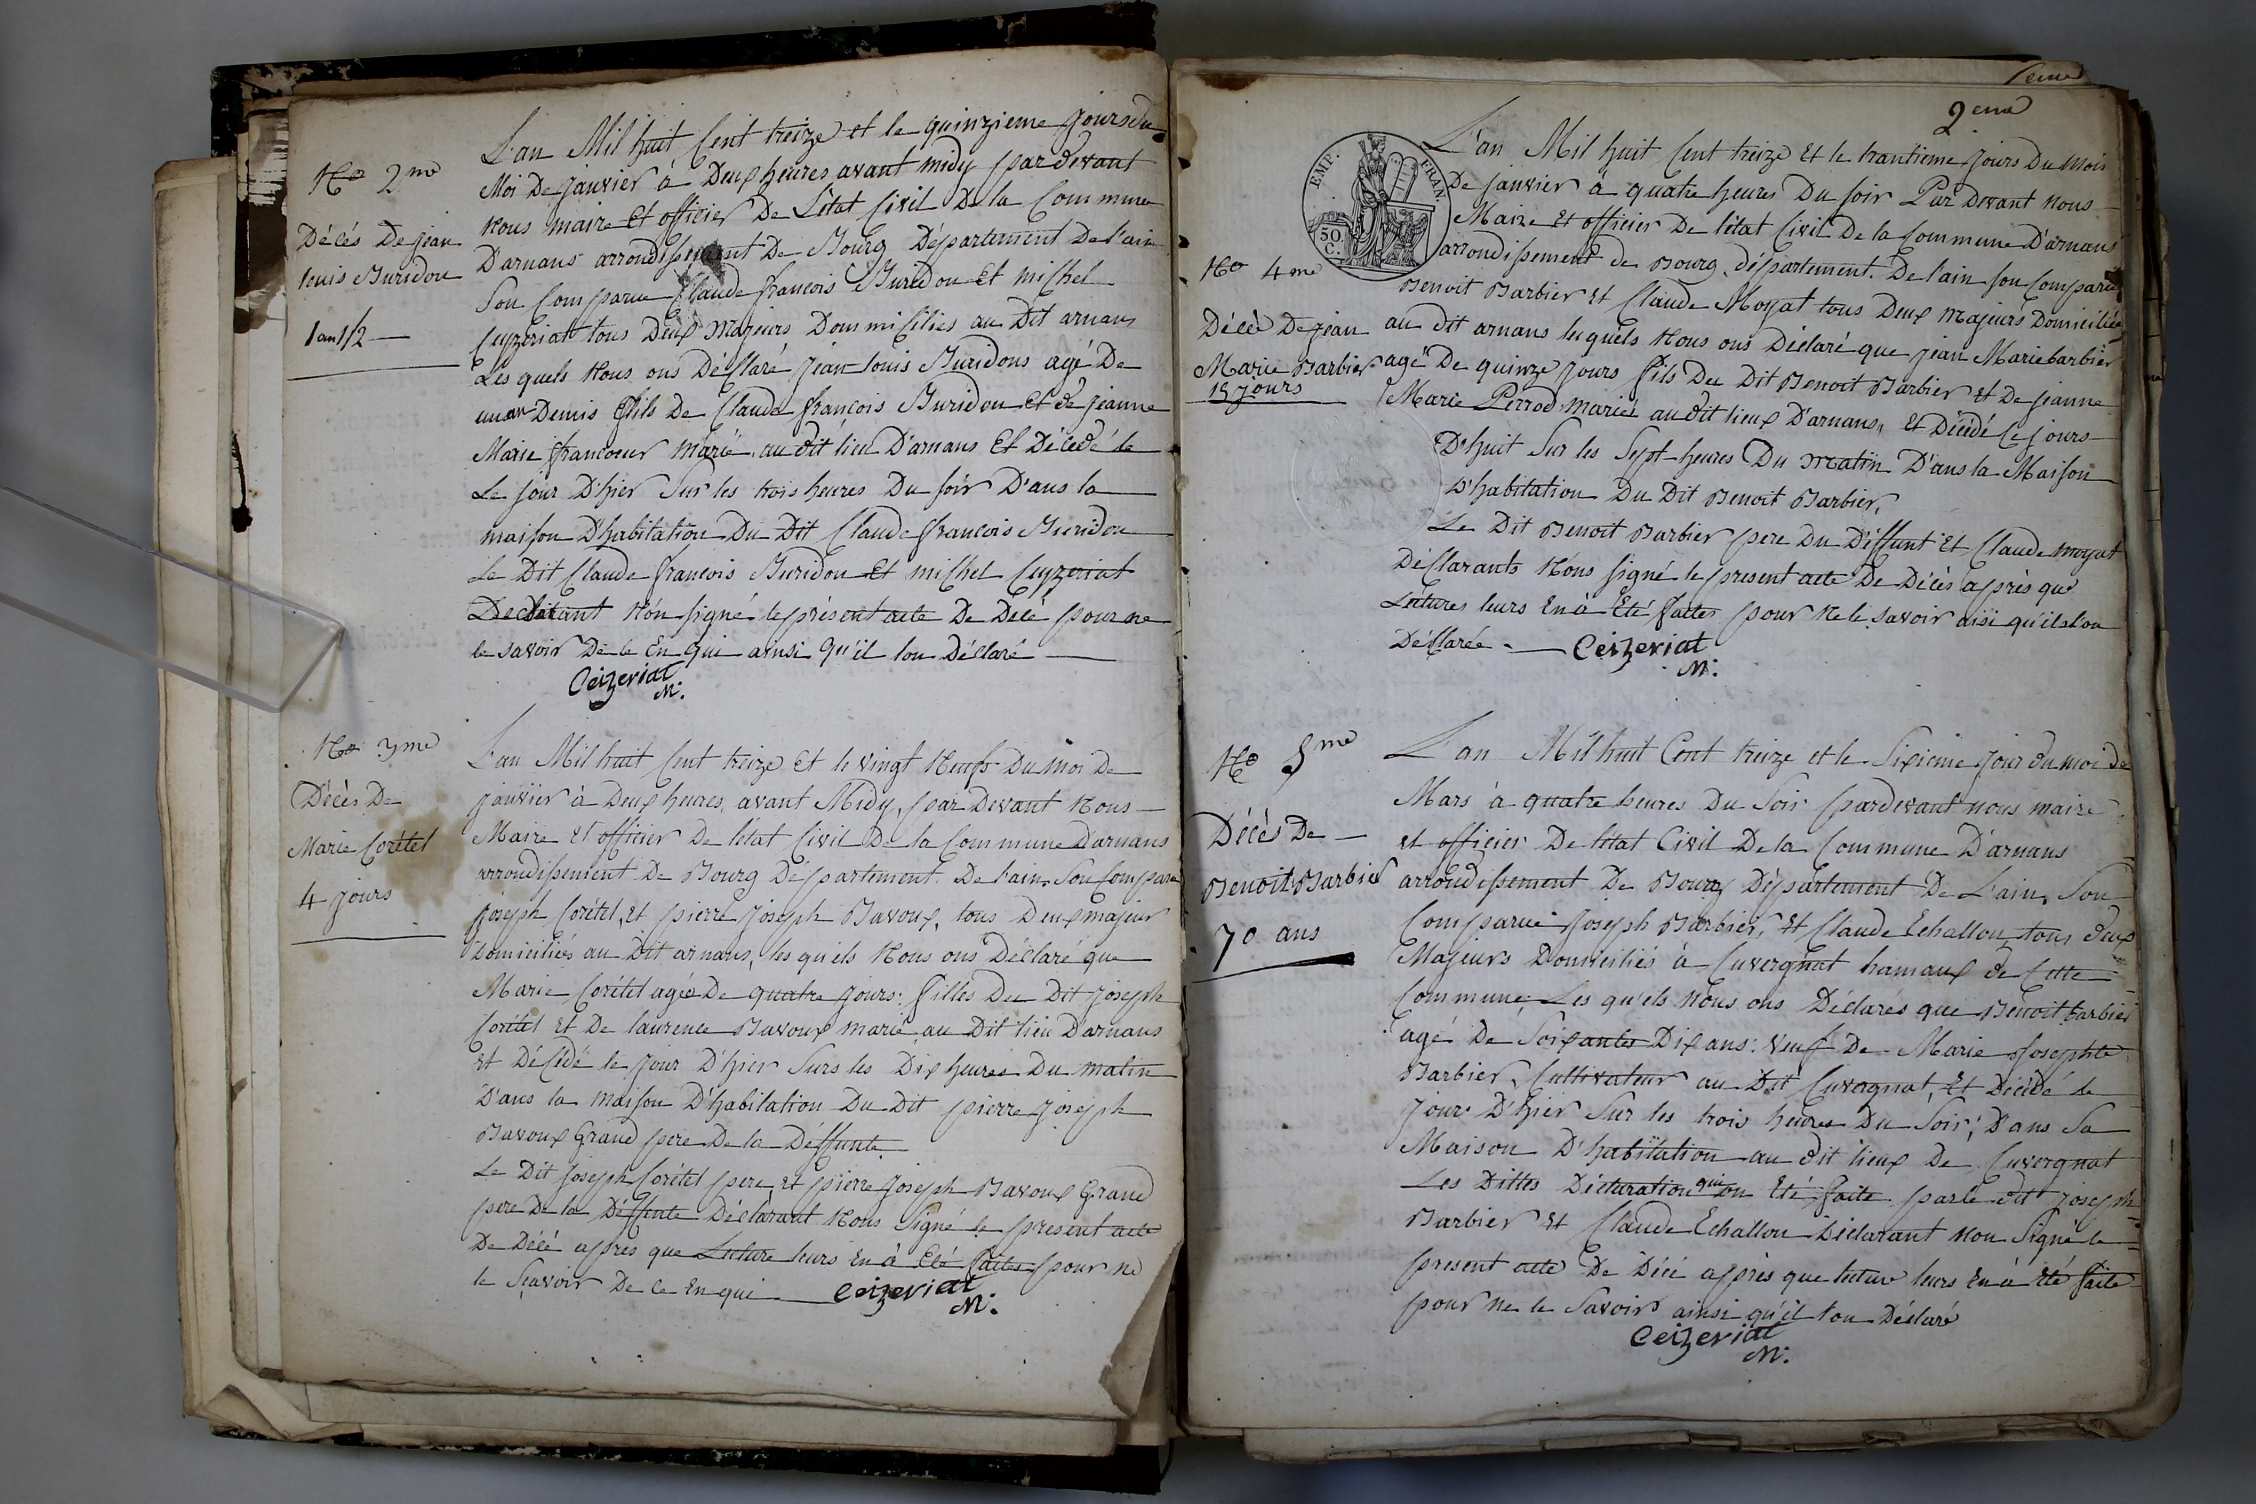 No 2me
Décés De jean
louis Buridon
1 an 1/2
L'an Mil huit Cent treize et le quinzieme jours du
Moi De janvier à Deux heures avant midy par devant
Nous maire Et officier De L'état Civil De la Commune
D'arnans arrondissement De Bourg Département De l'ain
Son Comparue Claude françois Buridon Et michel
Ceyzeriat tous Deux Majeurs Dommicilies au Dit arnans
Les quels Nous ons Déclaré jean louis Buridons agé De
un an Demis fils De Claude françois Buridon Et de jeanne
Marie francoeur Marié au dit lieu D'arnans Et Décédé le
Le jour D'hier Sur les trois heures Du soir D'ans la
maison D'habitation Du Dit Claude françois Buridon
Le Dit Claude françois Buridon Et michel Ceyzeriat
Declarant Nón signé le présent acte De Décé pour ne
le savoir De Ce En qui ainsi qu'il lon Déclaré
Ceizeriat
M.
No 3me
Décès De
Marie Corétel
4 jours
L'an Mil huit Cent treize Et le vingt Neufs Du Moi De
janvier à Deux heures avant Midy, par Devant Nous
Maire Et officier De l'état Civil De la Commune D'arnans
arrondissement De Bourg Département De l'ain, Son Compare
joseph Corétel, Et pierre joseph Bavoux, tous Deux majeur
Domiciliés au Dit arnans, les quels Nous ons Déclaré que
Marie Corétel agée De quatre jours filles Du Dit joseph
Corétel Et De laurence Bavoux marié au Dit lieu D'arnans
Et Décédé le jour D'hier Surs les Dix heures Du matin
D'ans la maison D'habitation Du Dit pierre joseph
Bavoux Grand pere De la Déffunte
Le Dit joseph Corétel pere, Et pierre joseph Bavoux Grand
pere De la Déffunte Déclarant Nous Signé le present acte
De Décé après que Lecture leurs En à Eté faites pour ne
le Sçavoir De Ce En qui
Ceizeriat
M.
1eme
2eme
EMP. FRAN.
50 C.
No 4me
Décès De jean
Marie Barbier
15 jours
L'an Mil huit Cent treize Et le trantieme jours Du Mois
De janvier à quatre heures Du soir Par Devant Nous
Maire Et officier De l'état Civil De la Commune D'arnans
arrondissement de Bourg, département De l'ain son Comparu
Benoit Barbier Et Claude Moyat tous Deux Majeurs Domiciliés
au dit arnans lesquels Nous ons Déclaré que jean Marie barbier
agé De quinze jours fils Du Dit Benoit Barbier Et De jeanne
Marie Perrod marié au dit lieux D'arnans, Et Décédé Ce jours
D'huit Sur les Sept heures Du Matin D'ans la Maison
D'habitation Du Dit Benoit Barbier,
Le Dit Benoit Barbier pere Du Déffunt Et Claude moyat
Déclarants Nóns signé le present acte De Décès après que
Lectures leurs En à Eté faites pour Ne le savoir aisi qu'ils l'on
Déclarée
Ceizeriat
M.
No 5me
Décès De
Benoit Barbier
70 ans
L'an Mil huit Cent treize et le Sixieme jour du moi de
Mars à quatre heures Du Soir pardevant nous maire
et officier De l'état Civil De la Commune D'arnans
arrondissement De Bourg Département De L'ain, Son
Comparue joseph Barbier, Et Claude Echallon, tous deux
Majeurs Domiciliés à Cuvergnat hamaux de Cette
Commune Les quels Nous ons Déclarés que Benoit barbier
agé De Soixantes Dix ans: Veuf De Marie Josephte
Barbier, Cultivateur au Dit Cuvergnat, Et Décédé le
jour D'hier Sur les trois heures Du Soir; Dans Sa
Maison D'habitation au dit lieux De Cuvergnat
Les Dittes Déclaration qui on Eté faite par le dit joseph
Barbier Et Claude Echallon Déclarant non Signé le
present acte De Décé après que lecture leurs En à Eté faite
pour ne le Savoir ainsi qu'il l'on Déclaré
Ceizeriat
M.